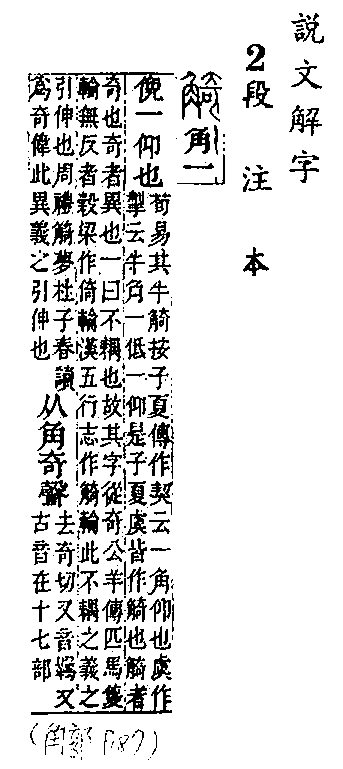 說文解字
2段注本
觭 角一
俛一仰也
荀易其牛觭按子夏傳作契云一角仰也虞作
掣云牛角一低一仰是子夏虞皆作觭也觭者
奇也奇者異也一曰不耦也故其字從奇公羊傳匹馬隻
輪無反者穀梁作倚輪漢五行志作觭輪此不耦之義之
引伸也周禮觭夢杜子春讀
爲奇偉此異義之引伸也
从角奇聲
去奇切又音羈又
古音在十七部
(角部 P.187)